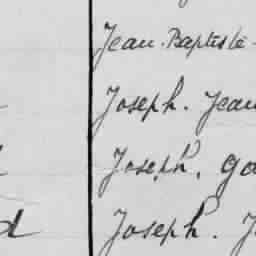 Jean-Baptiste-
Joseph. Jean
Joseph, Ga
Joseph. J